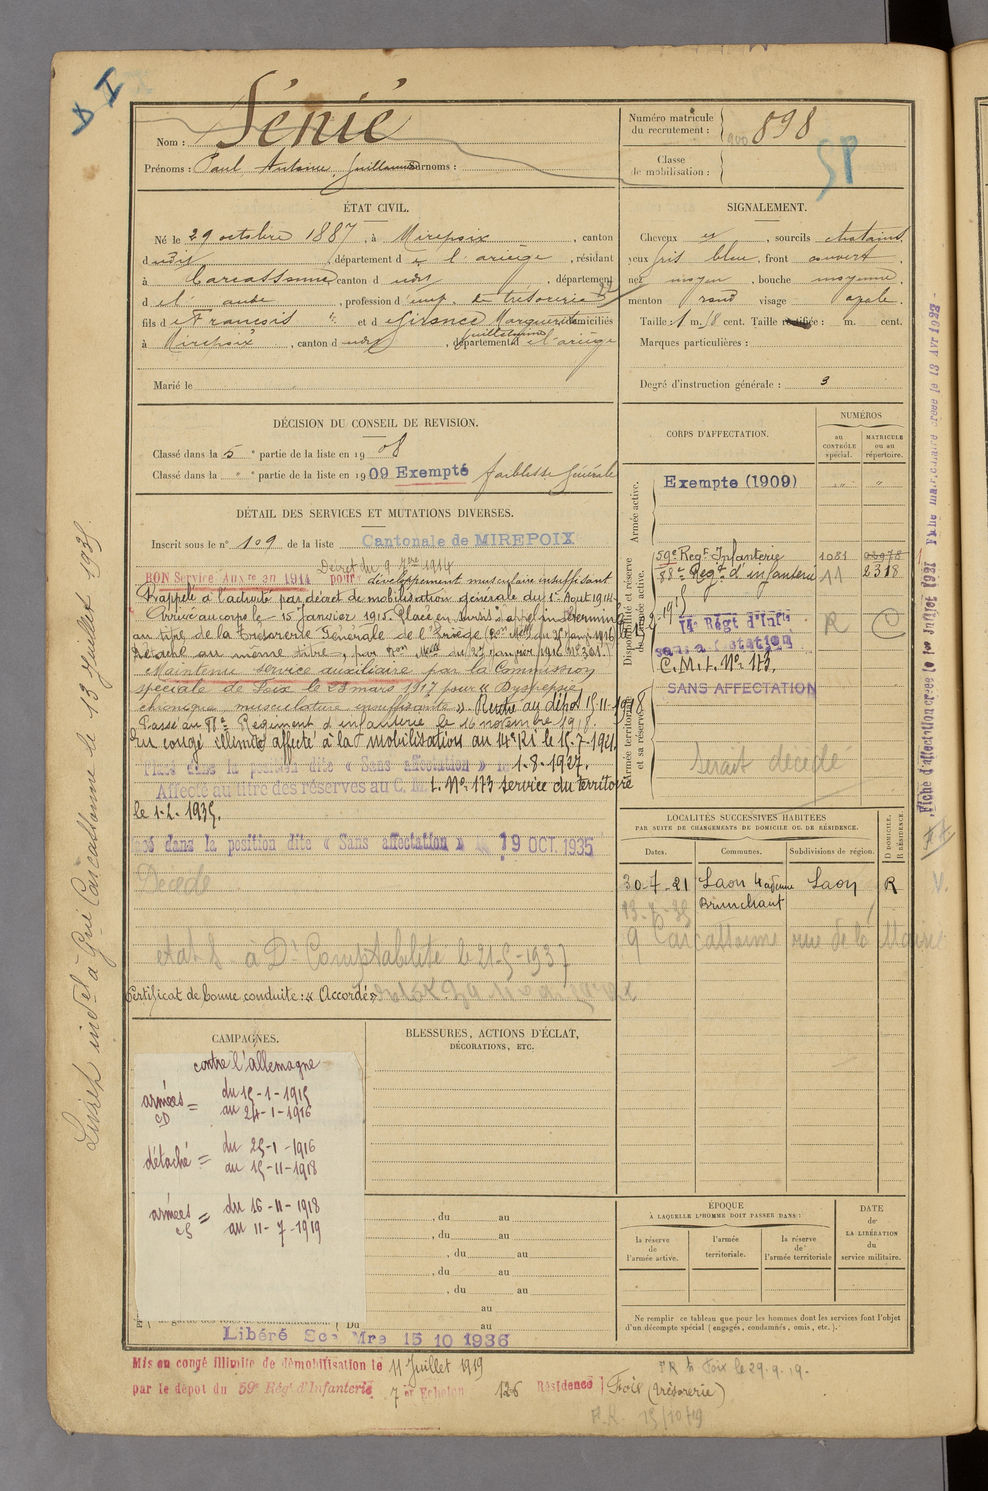 Nom : Sénié
Prénoms : Paul, Antoine, Guillaume Surnoms :
Numéro matricule du recrutement : 898
Classe de mobilisation :
SP
ÉTAT CIVIL.
Né le 29 octobre 1887, à Mirepoix, canton
dudit, département de l'ariège, résidant
à Carcassonne canton d udit, département
de l'aude, profession d'emp. de trésorerie
fils de François et de Marguerite domiciliés
à Mirepoix, canton dudit, département de l'ariège
Marié le
SIGNALEMENT.
Cheveux et, sourcils chatains
yeux gris bleu, front couvert,
nez moyen, bouche moyenne,
menton rond visage ovale.
Taille : 1 m. 58 cent. Taille rectifiée : m. cent.
Marques particulières :
Degré d'instruction générale : 3
DÉCISION DU CONSEIL DE REVISION.
Classé dans la 5e partie de la liste en 1908
Classé dans la " partie de la liste en 1909 Exempté faiblesse générale
DÉTAIL DES SERVICES ET MUTATIONS DIVERSES.
Inscrit sous le n° 109 de la liste Cantonale de MIREPOIX
Décret du 9 7bre 1914
BON Service Auxre en 1914 pour développement musculaire insuffisant
Rappelé à l'activité par décret de mobilisation générale du 1er Août 1914.
Arrivé au corps le 15 Janvier 1915. Placé en sursis d'appel indéterminé
au titre de la Trésorerie Générale de l'Ariège
Détaché au même titre, par Don Melle du 27 janvier 1916 N° 301.
Maintenu service auxiliaire par la Commission
spéciale de Foix le 28 mars 1917 pour "Dyspepsie
chronique, musculature insuffisante". Rentré au dépôt 15-11-1918
Passé au 88e Régiment d'infanterie le 16 novembre 1918.
En congé illimité affecté à la mobilisation au 14e RI le 15-7-1921
Placé dans la position dite « Sans affectation » le 1-8-1927.
Affecté au titre des réserves au C. M. I. N° 173 service du territoire
le 1-2-1935.
Placé dans la position dite « Sans affectation » 19 OCT. 1935
Décédé
à Dt Comptabilité le 21-5-1937
Certificat de bonne conduite : « Accordé »
CORPS D'AFFECTATION.
NUMÉROS
au CONTRÔLE spécial.
MATRICULE ou au répertoire.
Armée active.
Exempté (1909)
Disponibilité et réserve de l'armée active.
59e Regt Infanterie 1081
88e Regt d'infanterie 11 2318
14e Régt d'Infie R C
sans affectation
C.M.I. N° 173.
SANS AFFECTATION
Armée territoriale et sa réserve.
Serait décédé
LOCALITÉS SUCCESSIVES HABITÉES
PAR SUITE DE CHANGEMENTS DE DOMICILE OU DE RÉSIDENCE.
Dates. Communes. Subdivisions de région. D DOMICILE. R RÉSIDENCE.
30-7-21 Laon Laon R
Brunehaut
Carcassonne rue de la Mairie
CAMPAGNES.
contre l'allemagne
armées CD = du 15-1-1915
au 24-1-1916
détaché = du 25-1-1916
au 15-11-1918
armées = du 16-11-1918
au 11-7-1919
BLESSURES, ACTIONS D'ÉCLAT,
DÉCORATIONS, ETC.
, du au
, du au
, du au
, du au
, du au
au
Du au
Libéré Sce Mre 15 10 1936
ÉPOQUE
À LAQUELLE L'HOMME DOIT PASSER DANS :
la réserve de l'armée active.
l'armée territoriale.
la réserve de l'armée territoriale
DATE de LA LIBÉRATION du service militaire.
Ne remplir ce tableau que pour les hommes dont les services font l'objet
d'un décompte spécial (engagés, condamnés, omis, etc.).
Mis en congé illimité de démobilisation le 11 Juillet 1919
par le dépôt du 59e Régt d'Infanterie 7e Echelon 126 Résidence Foix (trésorerie)
Foix le 29.9.19.
15/10/19
Carcassonne le 13 Juillet 1935.